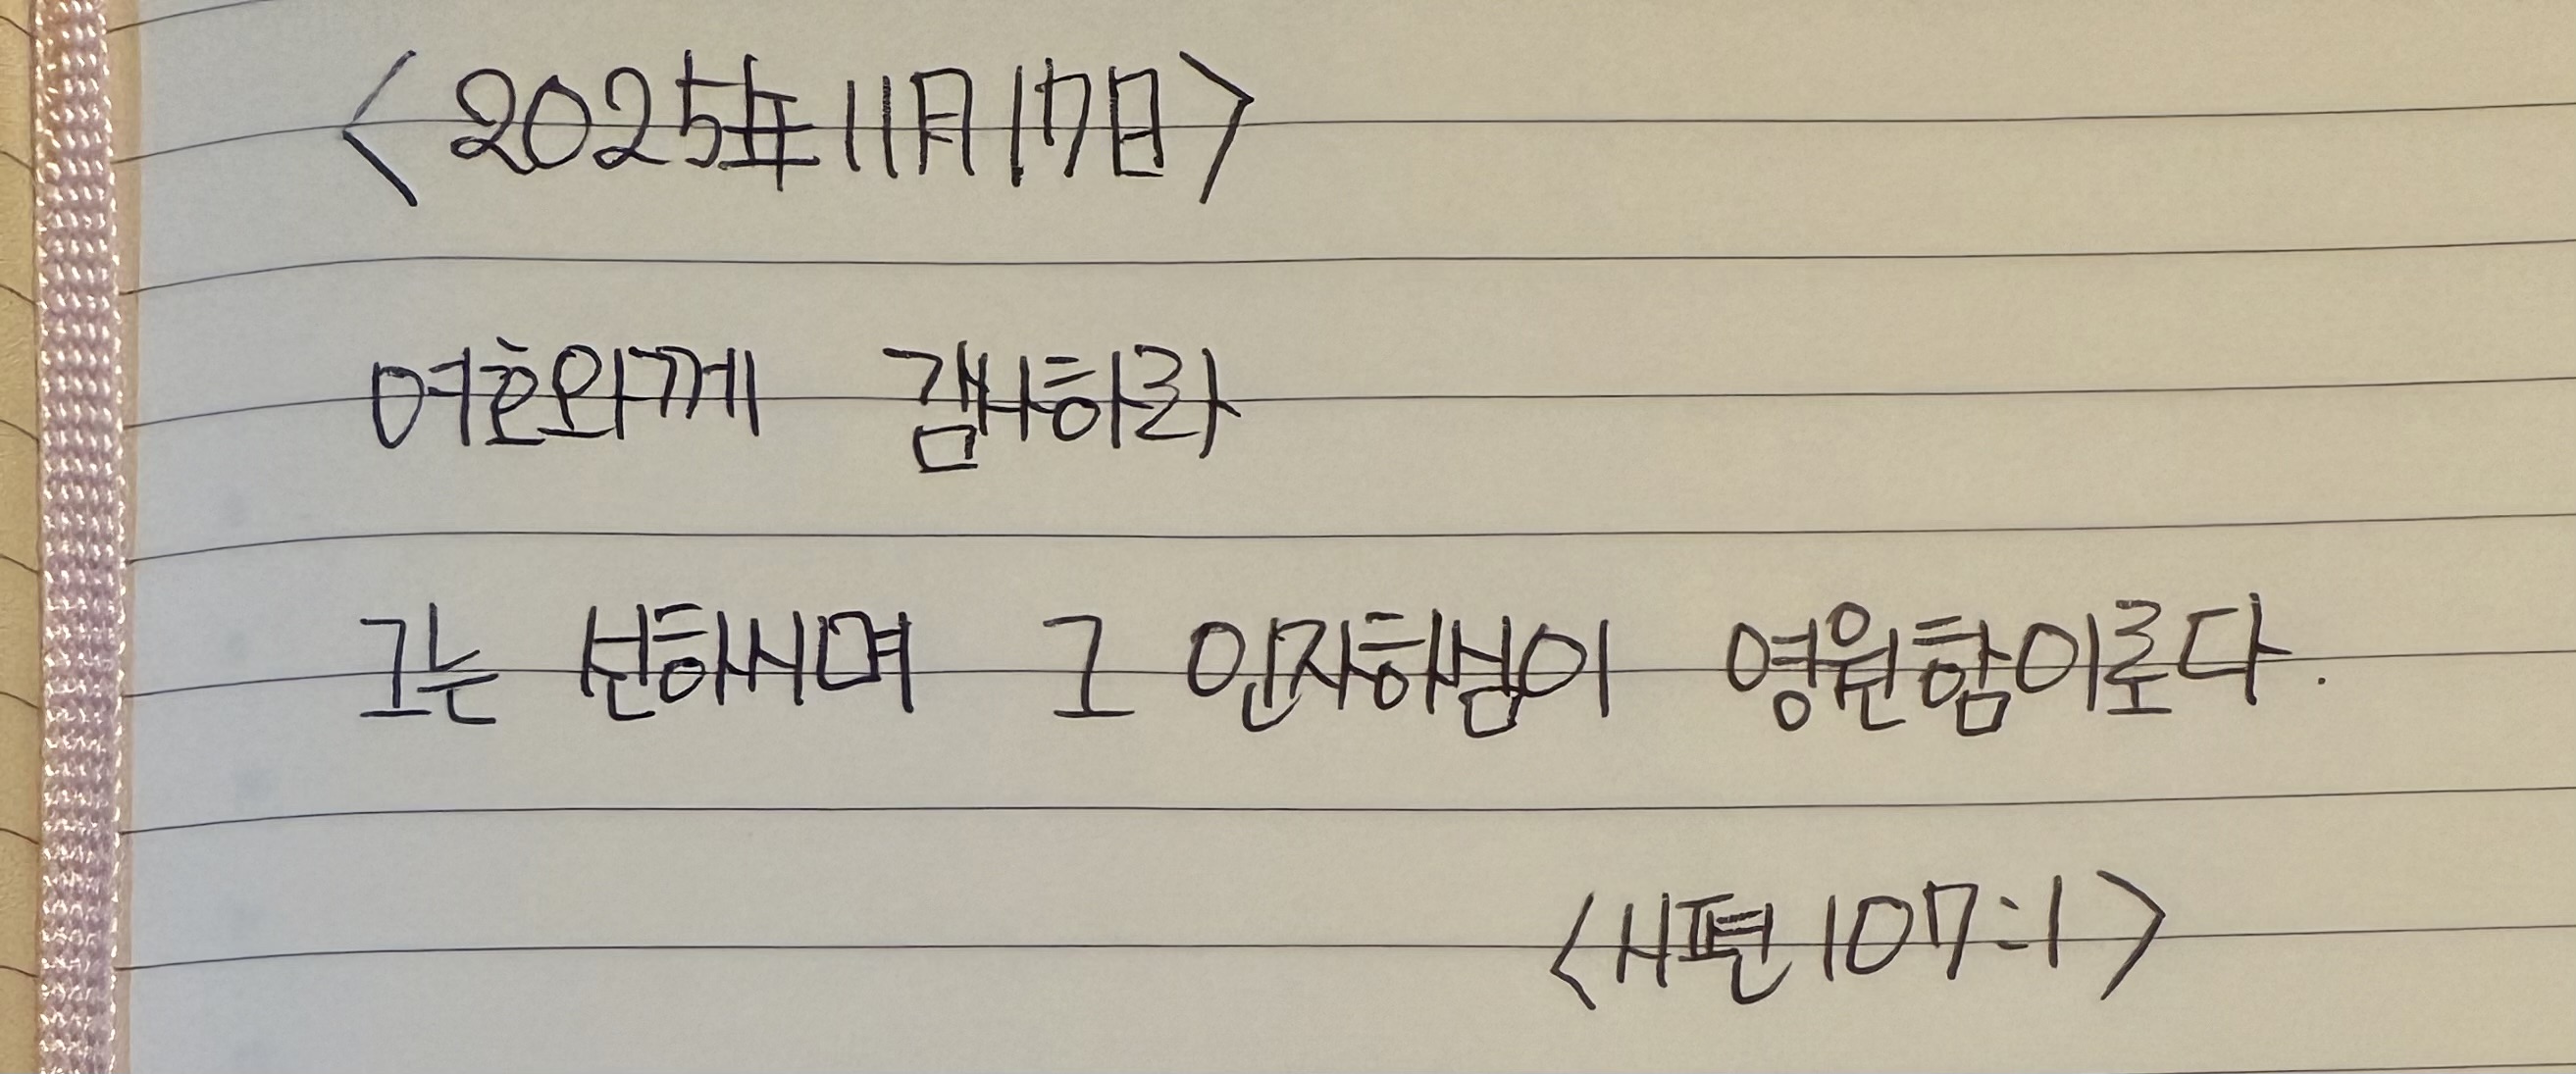 <2025年11月17日>
여호와께 감사하라
그는 선하시며 그 인자하심이 영원함이로다.
<시편 107:1>